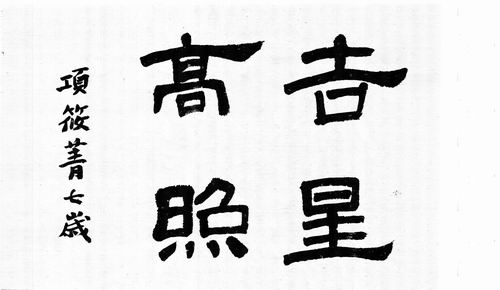 吉星
高照
項筱菁七歲